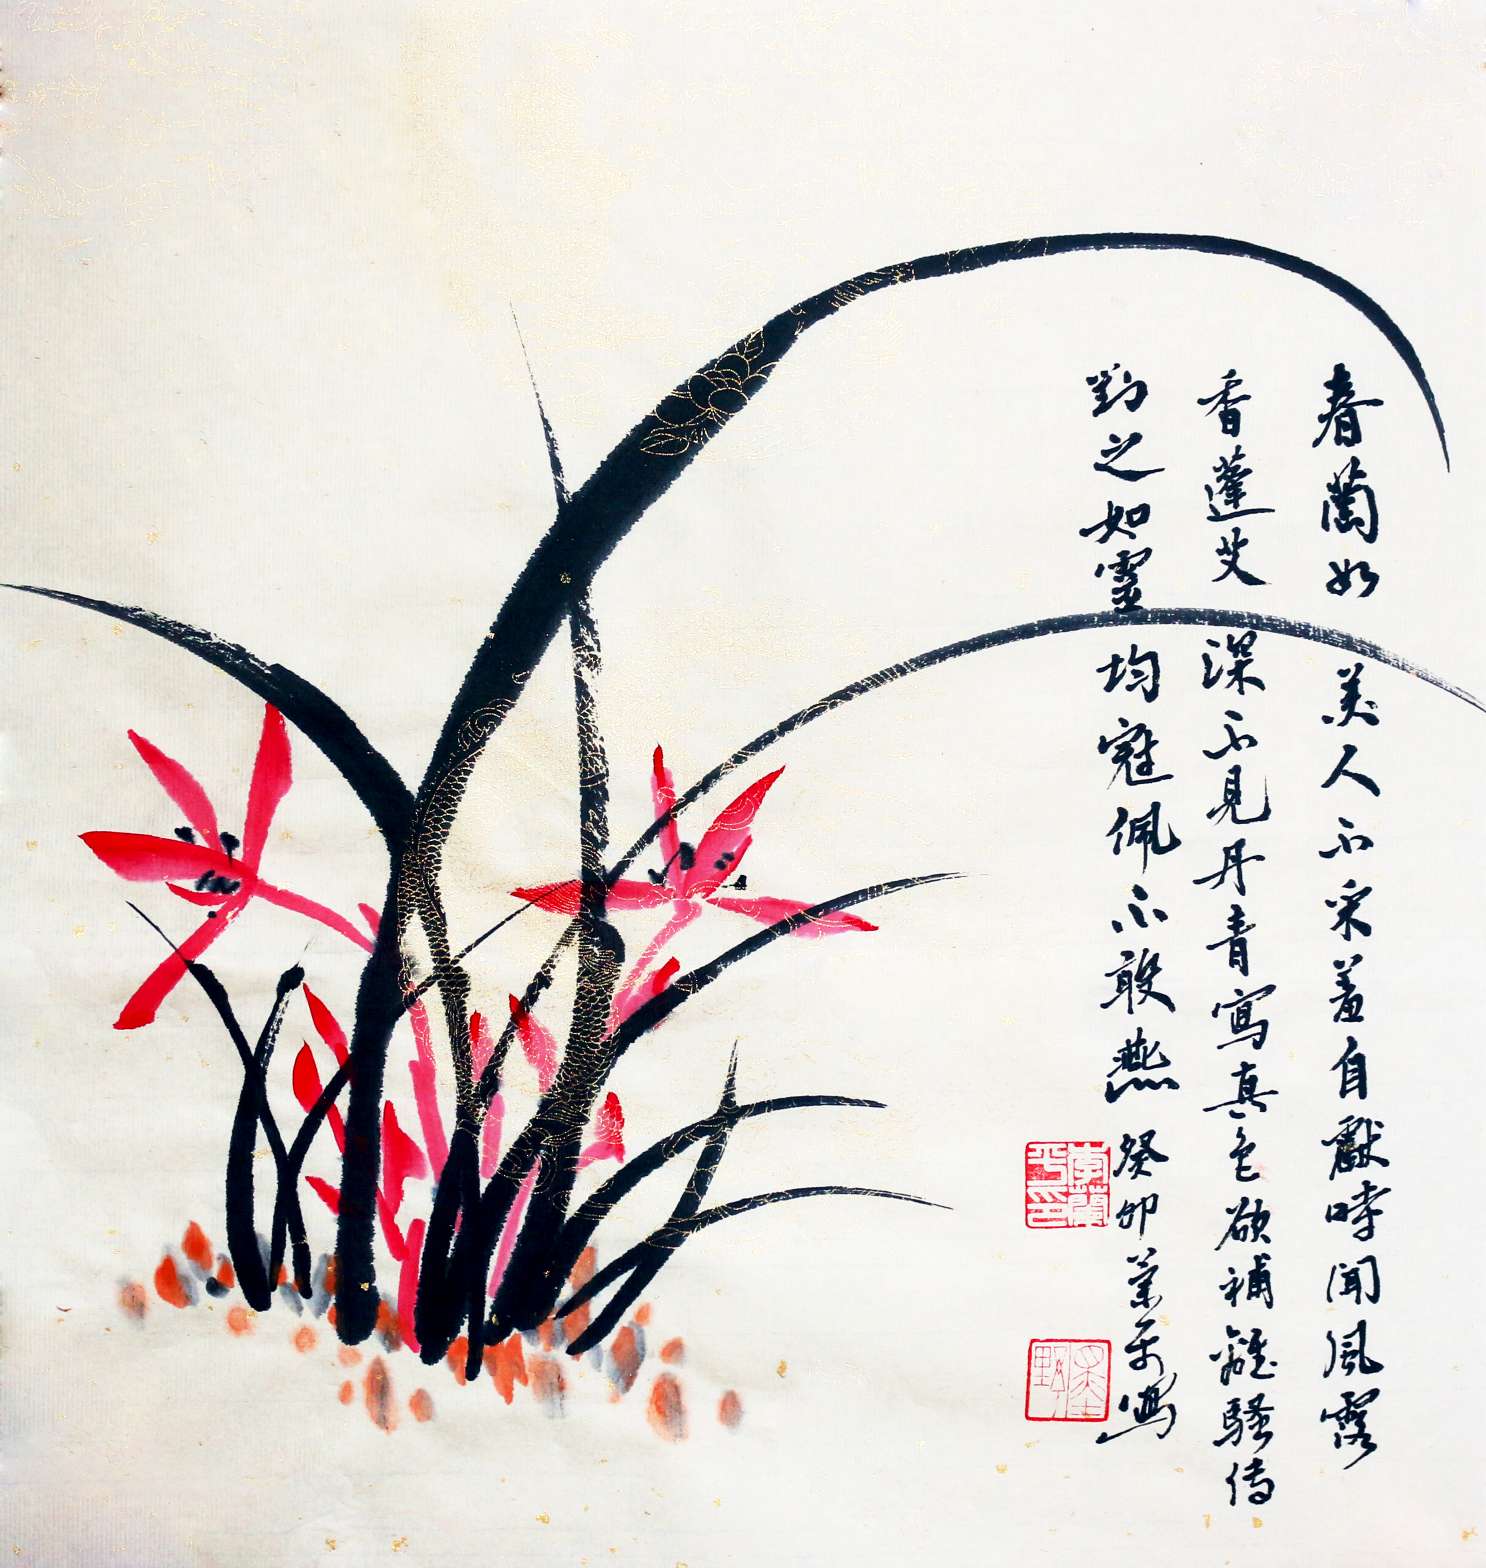 春蘭如美人不采羞自獻時聞風露
香蓬艾深不見丹青寫真色欲補離騷傳
對之如靈均冠佩不敢燕癸卯蘭平寫
李蘭平印
墨野